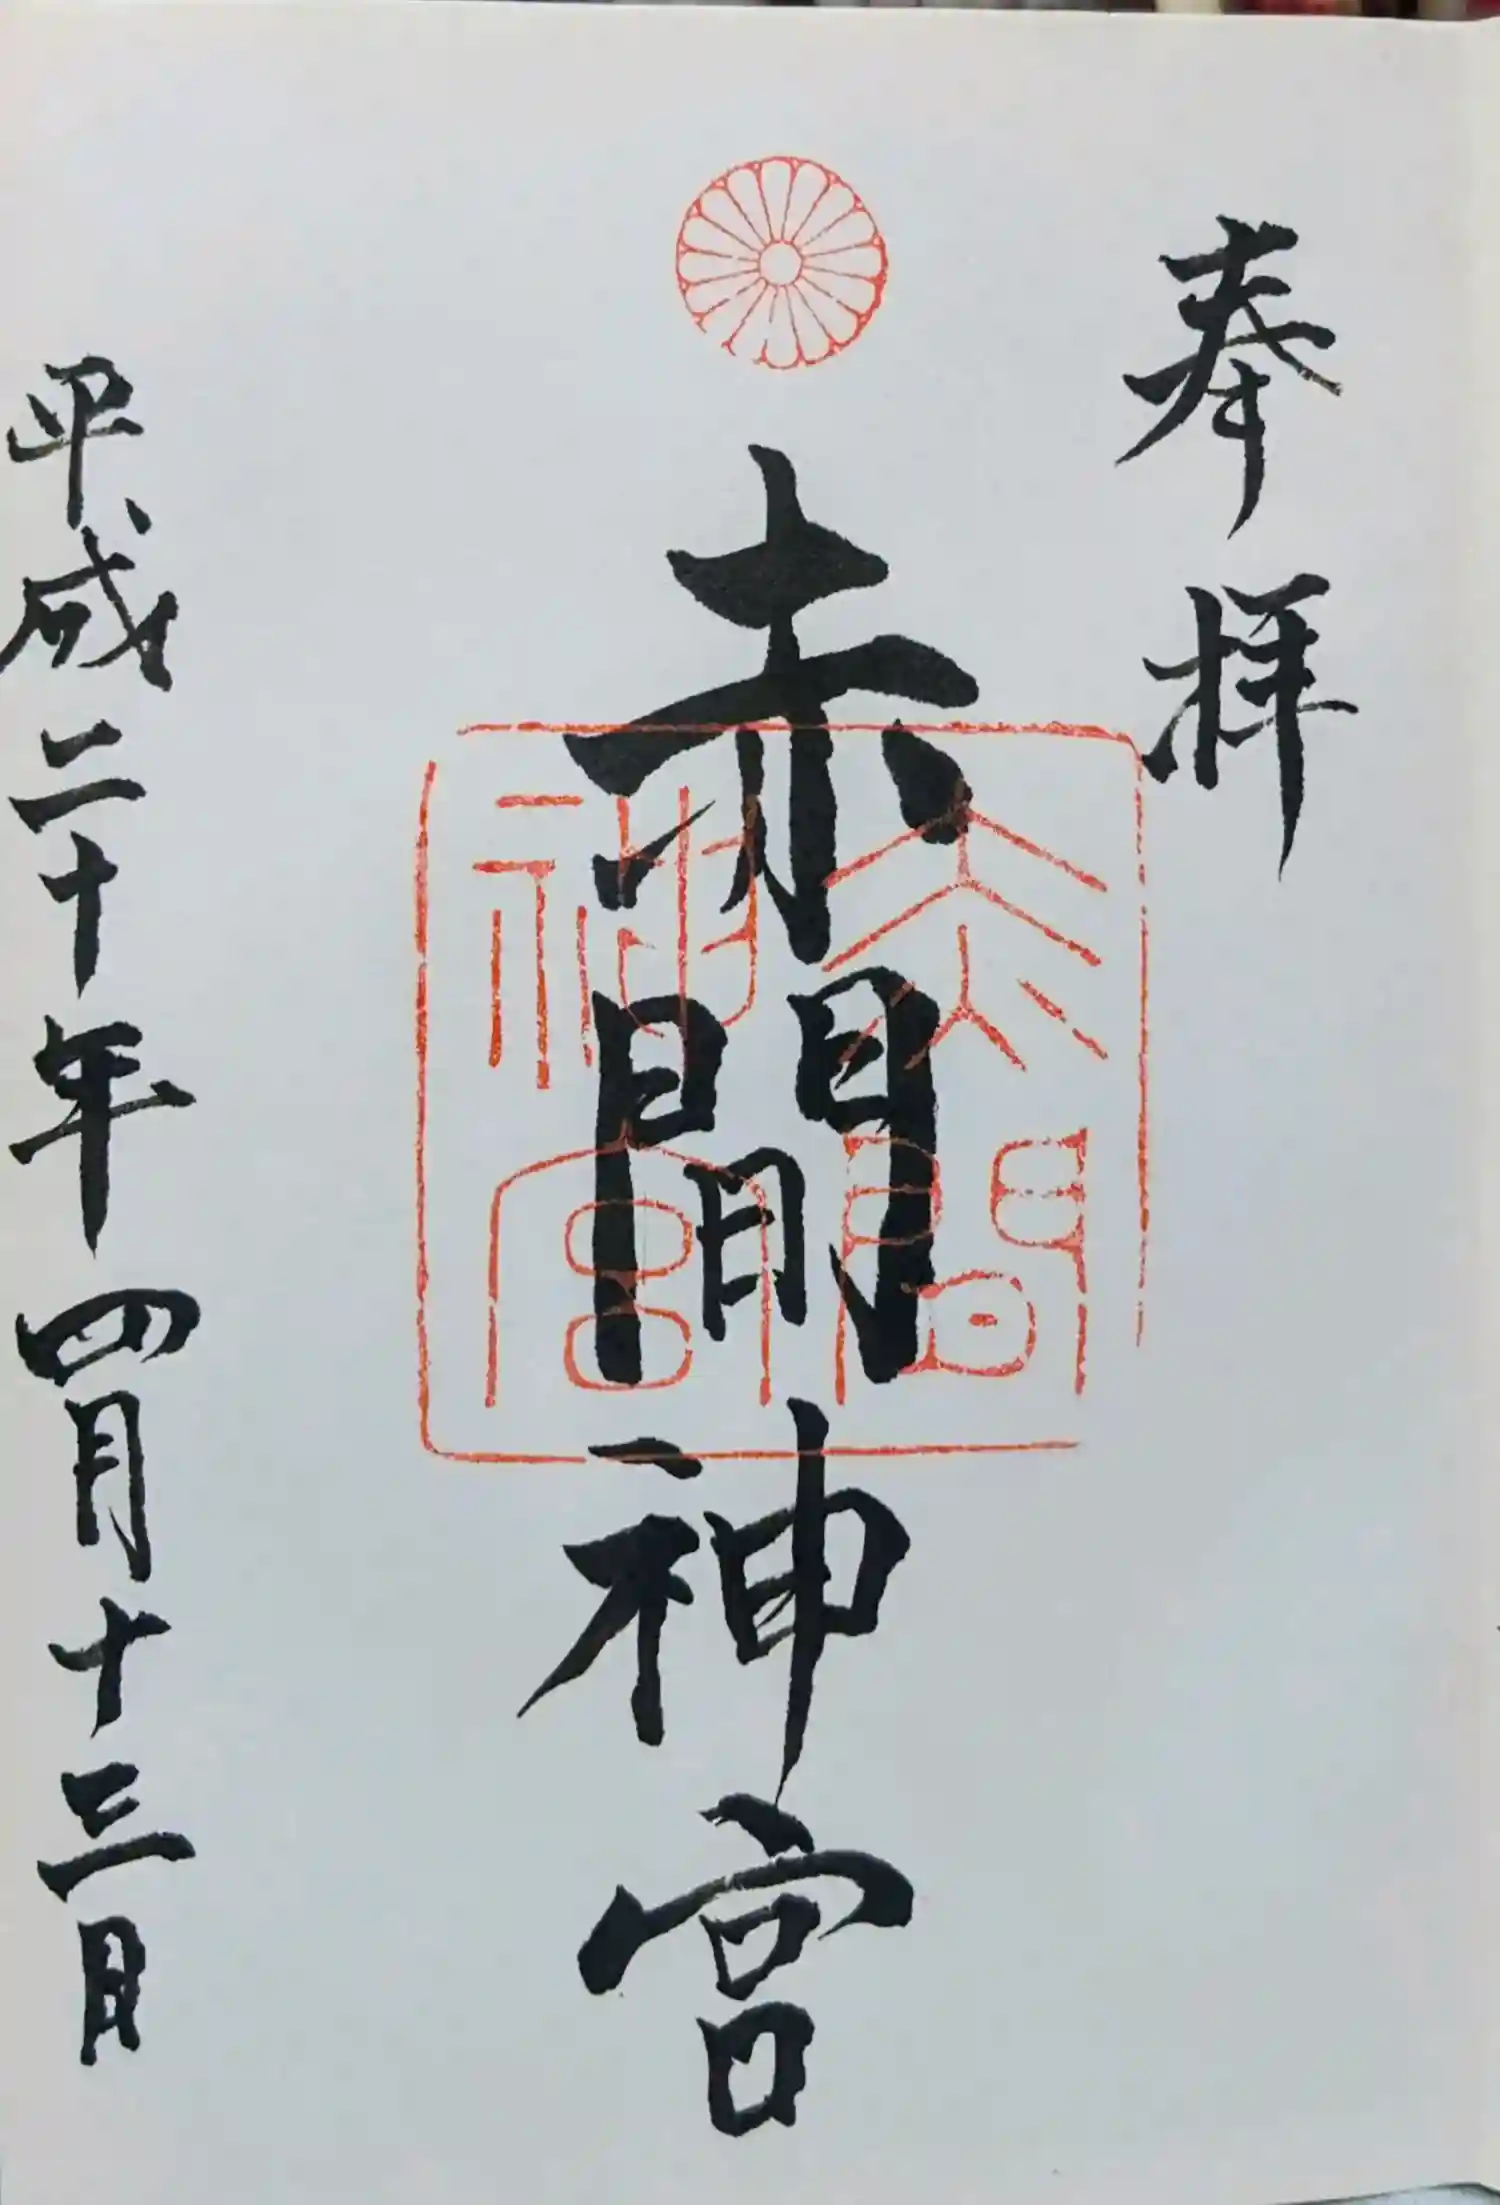 奉拝
赤間神宮
赤間神宮
平成二十年四月十三日